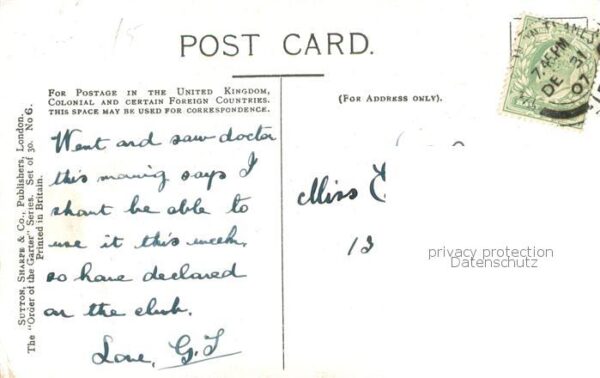 1/5
POST CARD.
FOR POSTAGE IN THE UNITED KINGDOM,
COLONIAL AND CERTAIN FOREIGN COUNTRIES.
THIS SPACE MAY BE USED FOR CORRESPONDENCE.
(FOR ADDRESS ONLY).
7.45 PM
DE 31
07
Went and saw doctor
this morning says I
shant be able to
use it this week,
so have declared
on the club.
Love, G.T
Miss
12
privacy protection
Datenschutz
SUTTON, SHARPE & CO., Publishers, London.
The "Order of the Garter" Series. Set of 30. No 6.
Printed in Britain.